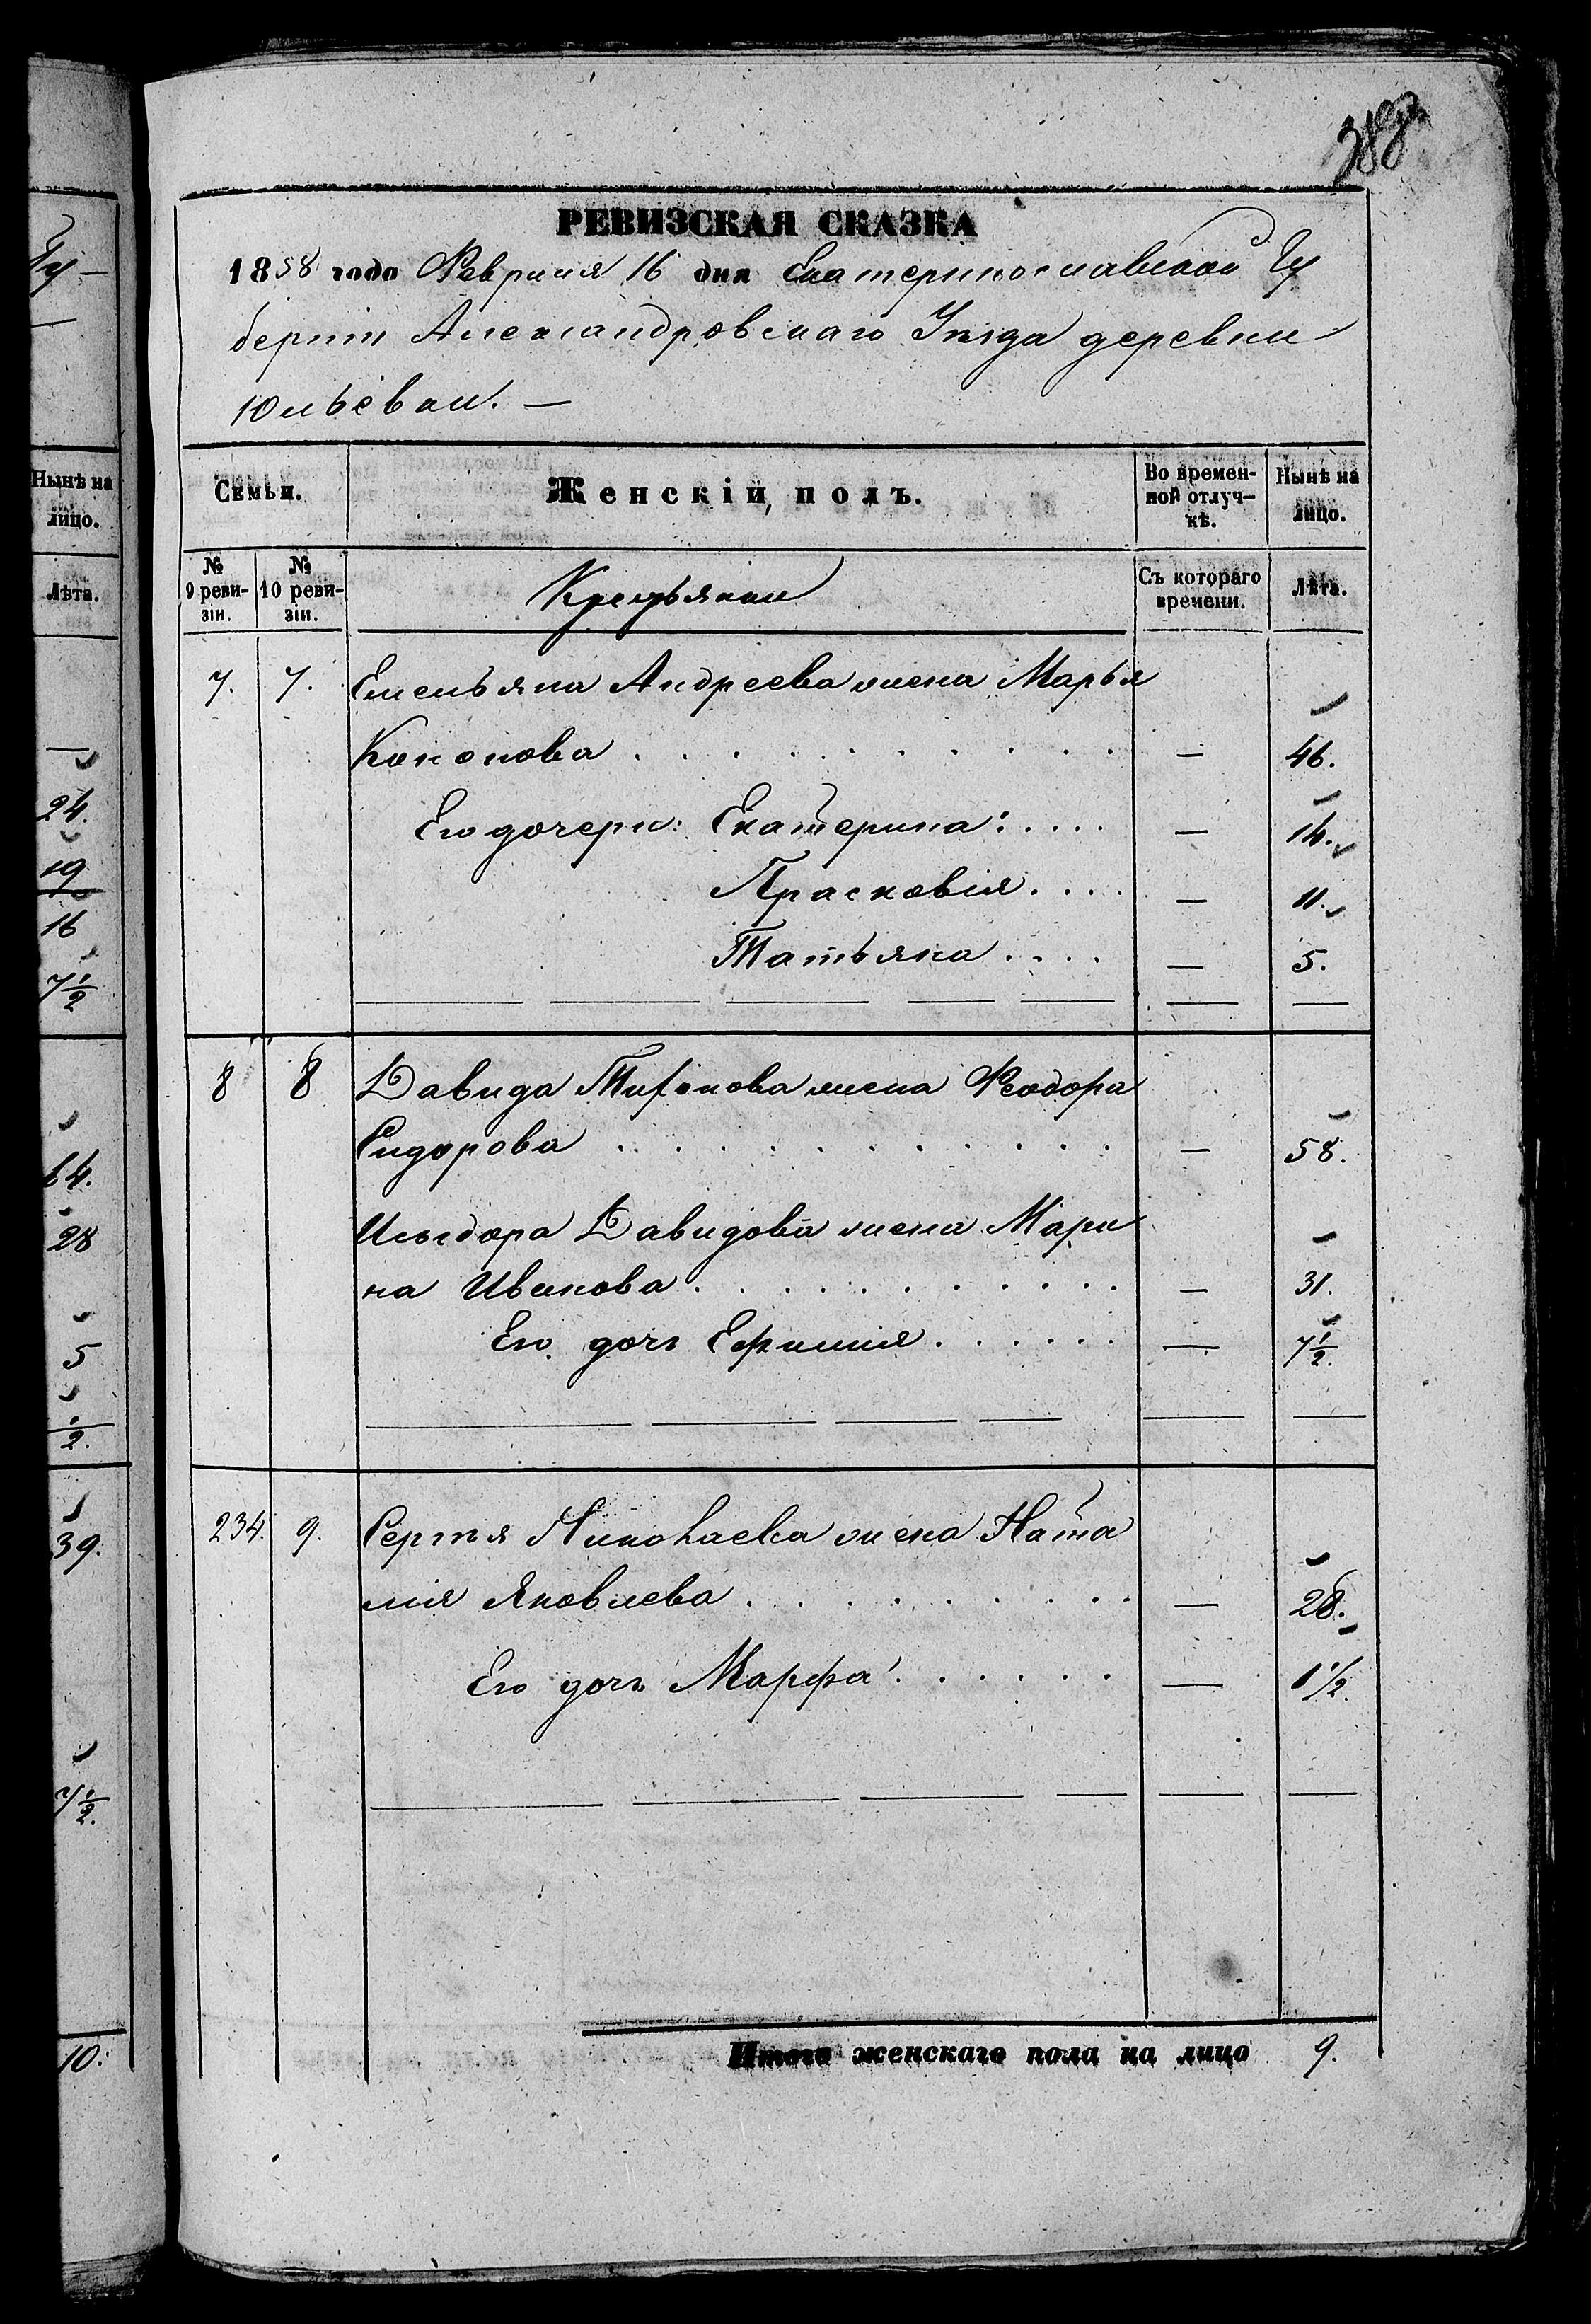 388
РЕВИЗСКАЯ СКАЗКА
1858 года Февраля 16 дня Екатеринославской Гу
берніи Александровскаго Уѣзда деревни
Юльевки. —
Семьи.
Женскій полъ.
Во времен-
ной отлуч-
кѣ.
Нынѣ на
лицо.
№
9 реви-
зіи.
№
10 реви-
зіи.
Крестьянки
Съ котораго
времени.
Лѣта.
7. 7. Емельяна Андреева жена Марья
Кононова . . . . . . . . . — 46.
Его дочери: Екатерина: . . . . — 14.
Прасковія . . . . — 11.
Татьяна . . . . — 5.
8 8 Давида Тихонова жена Феодора
Сидорова . . . . . . . . . . — 58.
Исидора Давидова жена Мари
на Иванова . . . . . . . . . — 31.
Его дочь Ефимия . . . . . . — 7½.
234. 9. Сергѣя Николаева жена Ната
лія Яковлева . . . . . . . . — 28.
Его дочь Марфа . . . . . . — 1½.
Итого женскаго пола на лицо 9.
Гу—
Нынѣ на
лицо.
Лѣта.
—
24.
19
16
7½
64.
28
5
½.
39.
7½.
10.